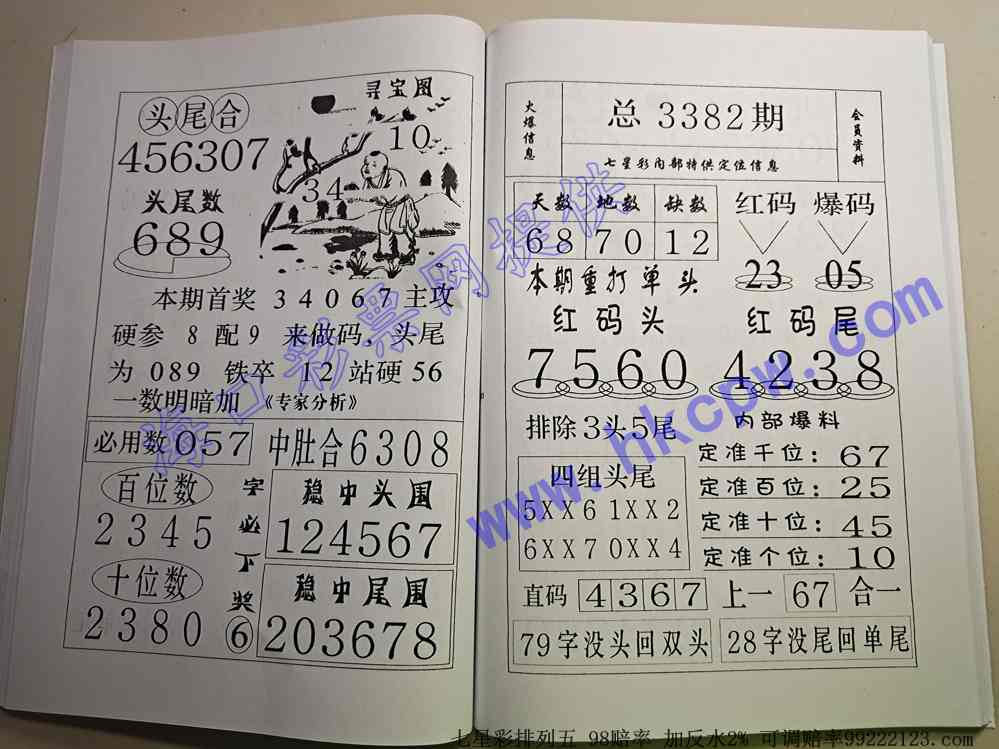 头尾合
456307
头尾数
689
寻宝图
10
34
本期首奖 34067主攻
硬参 8 配9 来做码、头尾
为 089 铁卒 12 站硬56
一数明暗加 《专家分析》
必用数 057
中肚合6308
百位数
2345
十位数
2380
字必下奖⑥
稳中头围
124567
稳中尾围
203678
火爆信息
总 3382期
七星彩内部特供定位信息
会员资料
天数 地数 缺数
68 70 12
红码 爆码
23 05
本期重打单头
红码头 红码尾
7560 4238
排除3头5尾
四组头尾
5XX6 1XX2
6XX7 0XX4
内部爆料
定准千位：67
定准百位：25
定准十位：45
定准个位：10
直码 4367 上一 67 合一
79字没头回双头 28字没尾回单尾
海口彩票网提供
www.hkcpw.com
七星彩排列五 98赔率 加反水2% 可调赔率99222123.com